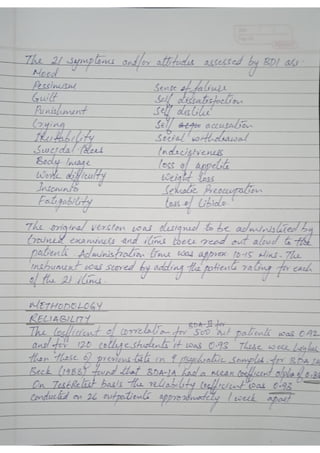 The 21 symptoms and/or attitudes assessed by BDI are:
Mood
Pessimism Sense of failiure
Guilt Self dissatisfaction
Punishment Self dislike
Crying Self accusation
Irritability Social withdrawal
Suicidal Ideas Indecisiveness
Body Image loss of appetite
Work difficulty Weight loss
Insomnia Somatic Preoccupation
Fatigability loss of Libido
The original version was designed to be administered by
trained examiners and items were read out aloud to the
patients. Administration time was approx 10-15 mins. The
instrument was scored by adding the patients rating for each
of the 21 items.
METHODOLOGY
RELIABILITY
The coefficient of correlation for BDA-II for 500 out patients was 0.92
and for 120 college students it was 0.93. These were higher
than those of previous tests in 9 psychiatric samples for BDA-IA
Beck (1988) found that BDA-IA had a mean coefficient alpha of
On Test Retest basis the reliability coefficient was 0.93
conducted on 26 outpatients approximately 1 week apart